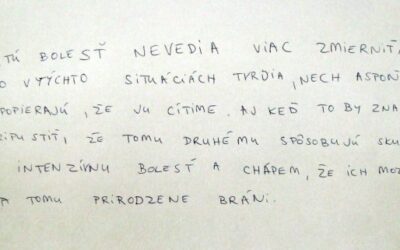 TÚ BOLESŤ NEVEDIA VIAC ZMIERNIŤ,
O V TÝCHTO SITUÁCIÁCH TVRDIA, NECH ASPOŇ
POPIERAJÚ, ŽE JU CÍTIME. AJ KEĎ TO BY ZNA
RIPUSTIŤ, ŽE TOMU DRUHÉMU SPÔSOBUJÚ SKU
INTENZÍVNU BOLESŤ A CHÁPEM, ŽE ICH MOZ
A TOMU PRIRODZENE BRÁNI.